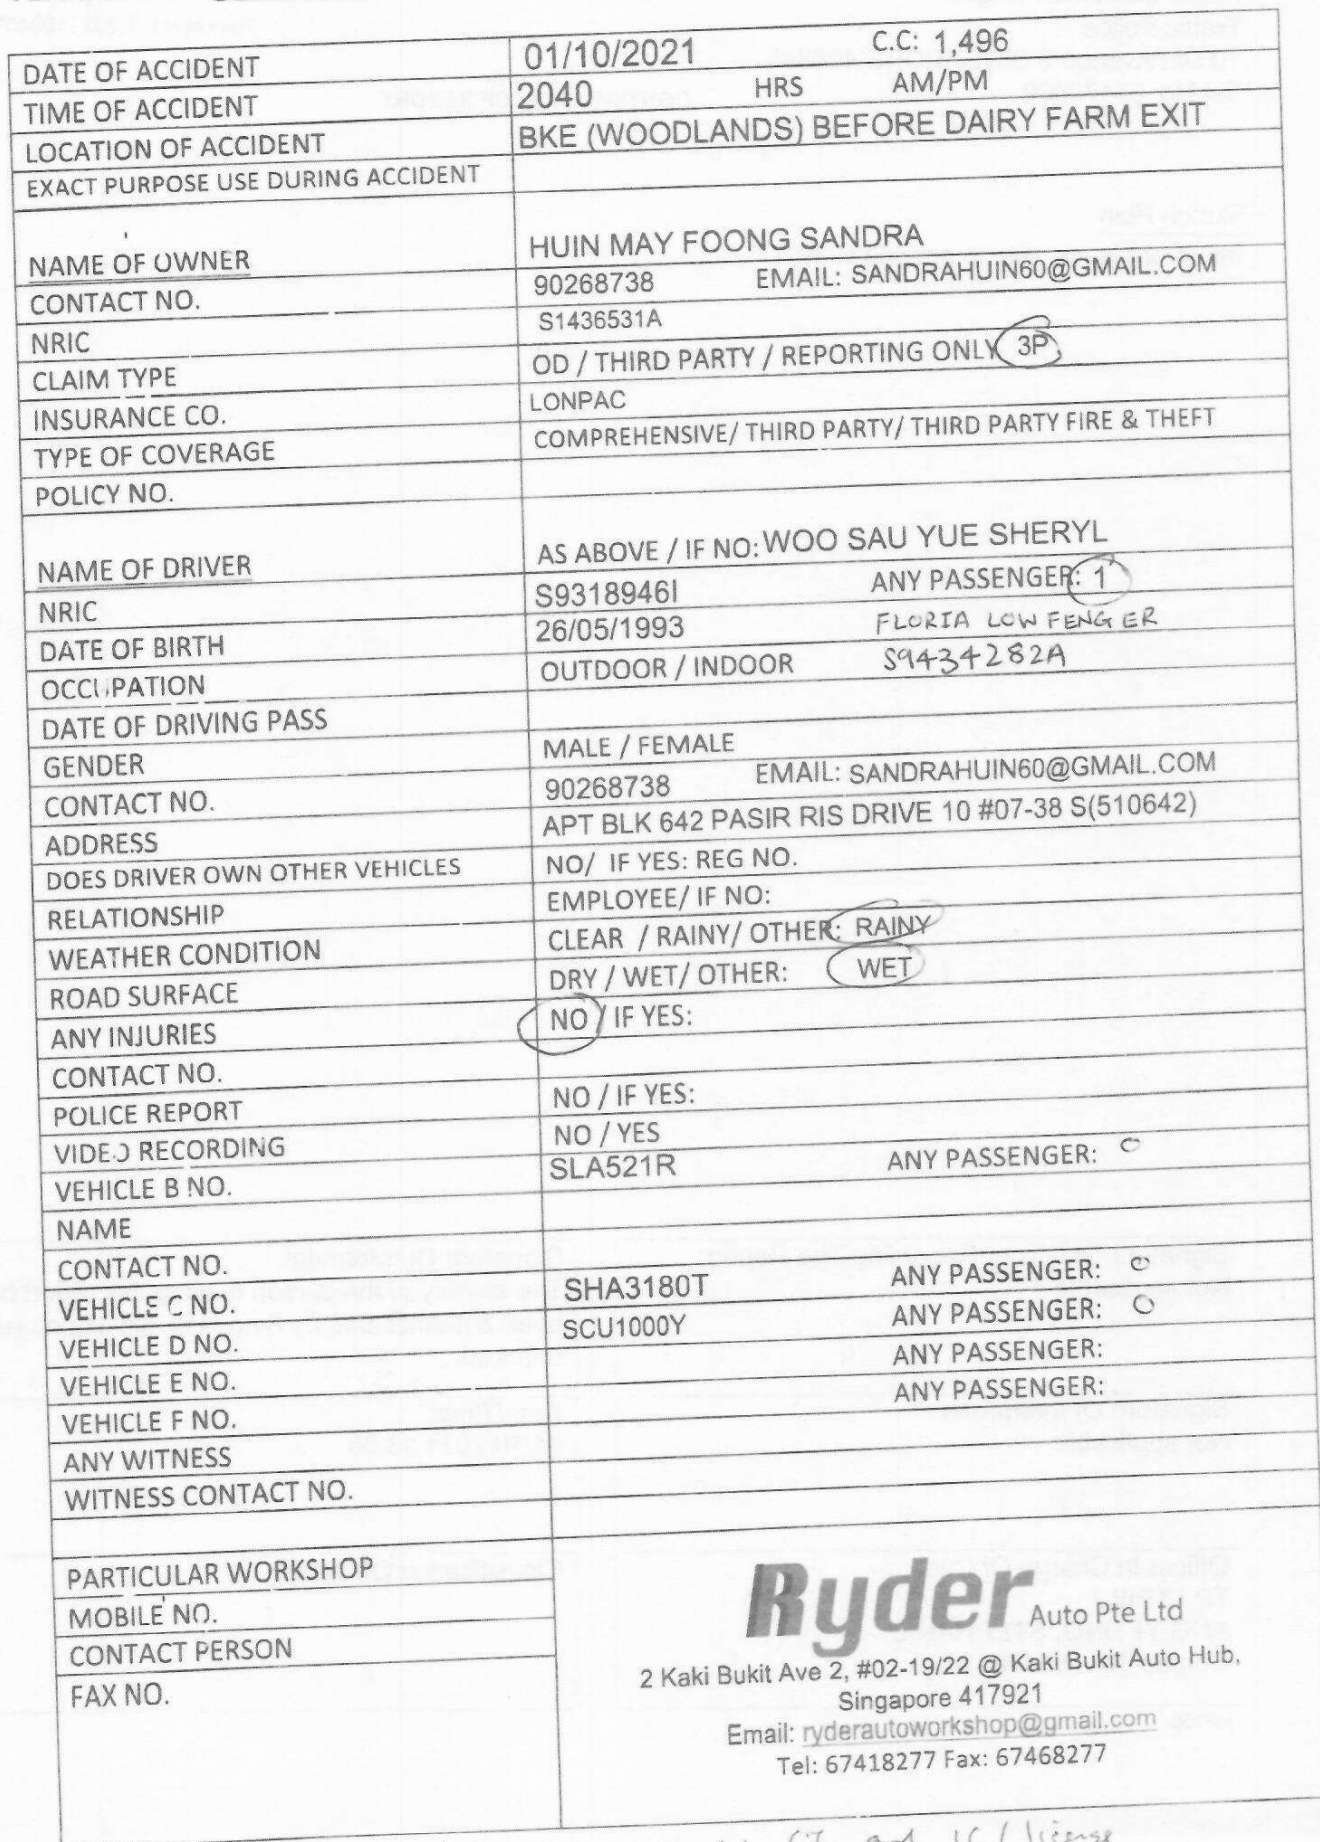 DATE OF ACCIDENT 01/10/2021 C.C: 1,496
TIME OF ACCIDENT 2040 HRS AM/PM
LOCATION OF ACCIDENT BKE (WOODLANDS) BEFORE DAIRY FARM EXIT
EXACT PURPOSE USE DURING ACCIDENT
NAME OF OWNER HUIN MAY FOONG SANDRA
CONTACT NO. 90268738 EMAIL: SANDRAHUIN60@GMAIL.COM
NRIC S1436531A
CLAIM TYPE OD / THIRD PARTY / REPORTING ONLY 3P
INSURANCE CO. LONPAC
TYPE OF COVERAGE COMPREHENSIVE/ THIRD PARTY/ THIRD PARTY FIRE & THEFT
POLICY NO.
NAME OF DRIVER AS ABOVE / IF NO: WOO SAU YUE SHERYL
NRIC S9318946I ANY PASSENGER: 1
DATE OF BIRTH 26/05/1993 FLORIA LOW FENG ER
OCCUPATION OUTDOOR / INDOOR S9434282A
DATE OF DRIVING PASS
GENDER MALE / FEMALE
CONTACT NO. 90268738 EMAIL: SANDRAHUIN60@GMAIL.COM
ADDRESS APT BLK 642 PASIR RIS DRIVE 10 #07-38 S(510642)
DOES DRIVER OWN OTHER VEHICLES NO/ IF YES: REG NO.
RELATIONSHIP EMPLOYEE/ IF NO:
WEATHER CONDITION CLEAR / RAINY/ OTHER: RAINY
ROAD SURFACE DRY / WET/ OTHER: WET
ANY INJURIES NO / IF YES:
CONTACT NO.
POLICE REPORT NO / IF YES:
VIDEO RECORDING NO / YES
VEHICLE B NO. SLA521R ANY PASSENGER: 0
NAME
CONTACT NO.
VEHICLE C NO. SHA3180T ANY PASSENGER: 0
VEHICLE D NO. SCU1000Y ANY PASSENGER: 0
VEHICLE E NO. ANY PASSENGER:
VEHICLE F NO. ANY PASSENGER:
ANY WITNESS
WITNESS CONTACT NO.
PARTICULAR WORKSHOP
MOBILE NO.
CONTACT PERSON
FAX NO.
Ryder Auto Pte Ltd
2 Kaki Bukit Ave 2, #02-19/22 @ Kaki Bukit Auto Hub,
Singapore 417921
Email: ryderautoworkshop@gmail.com
Tel: 67418277 Fax: 67468277